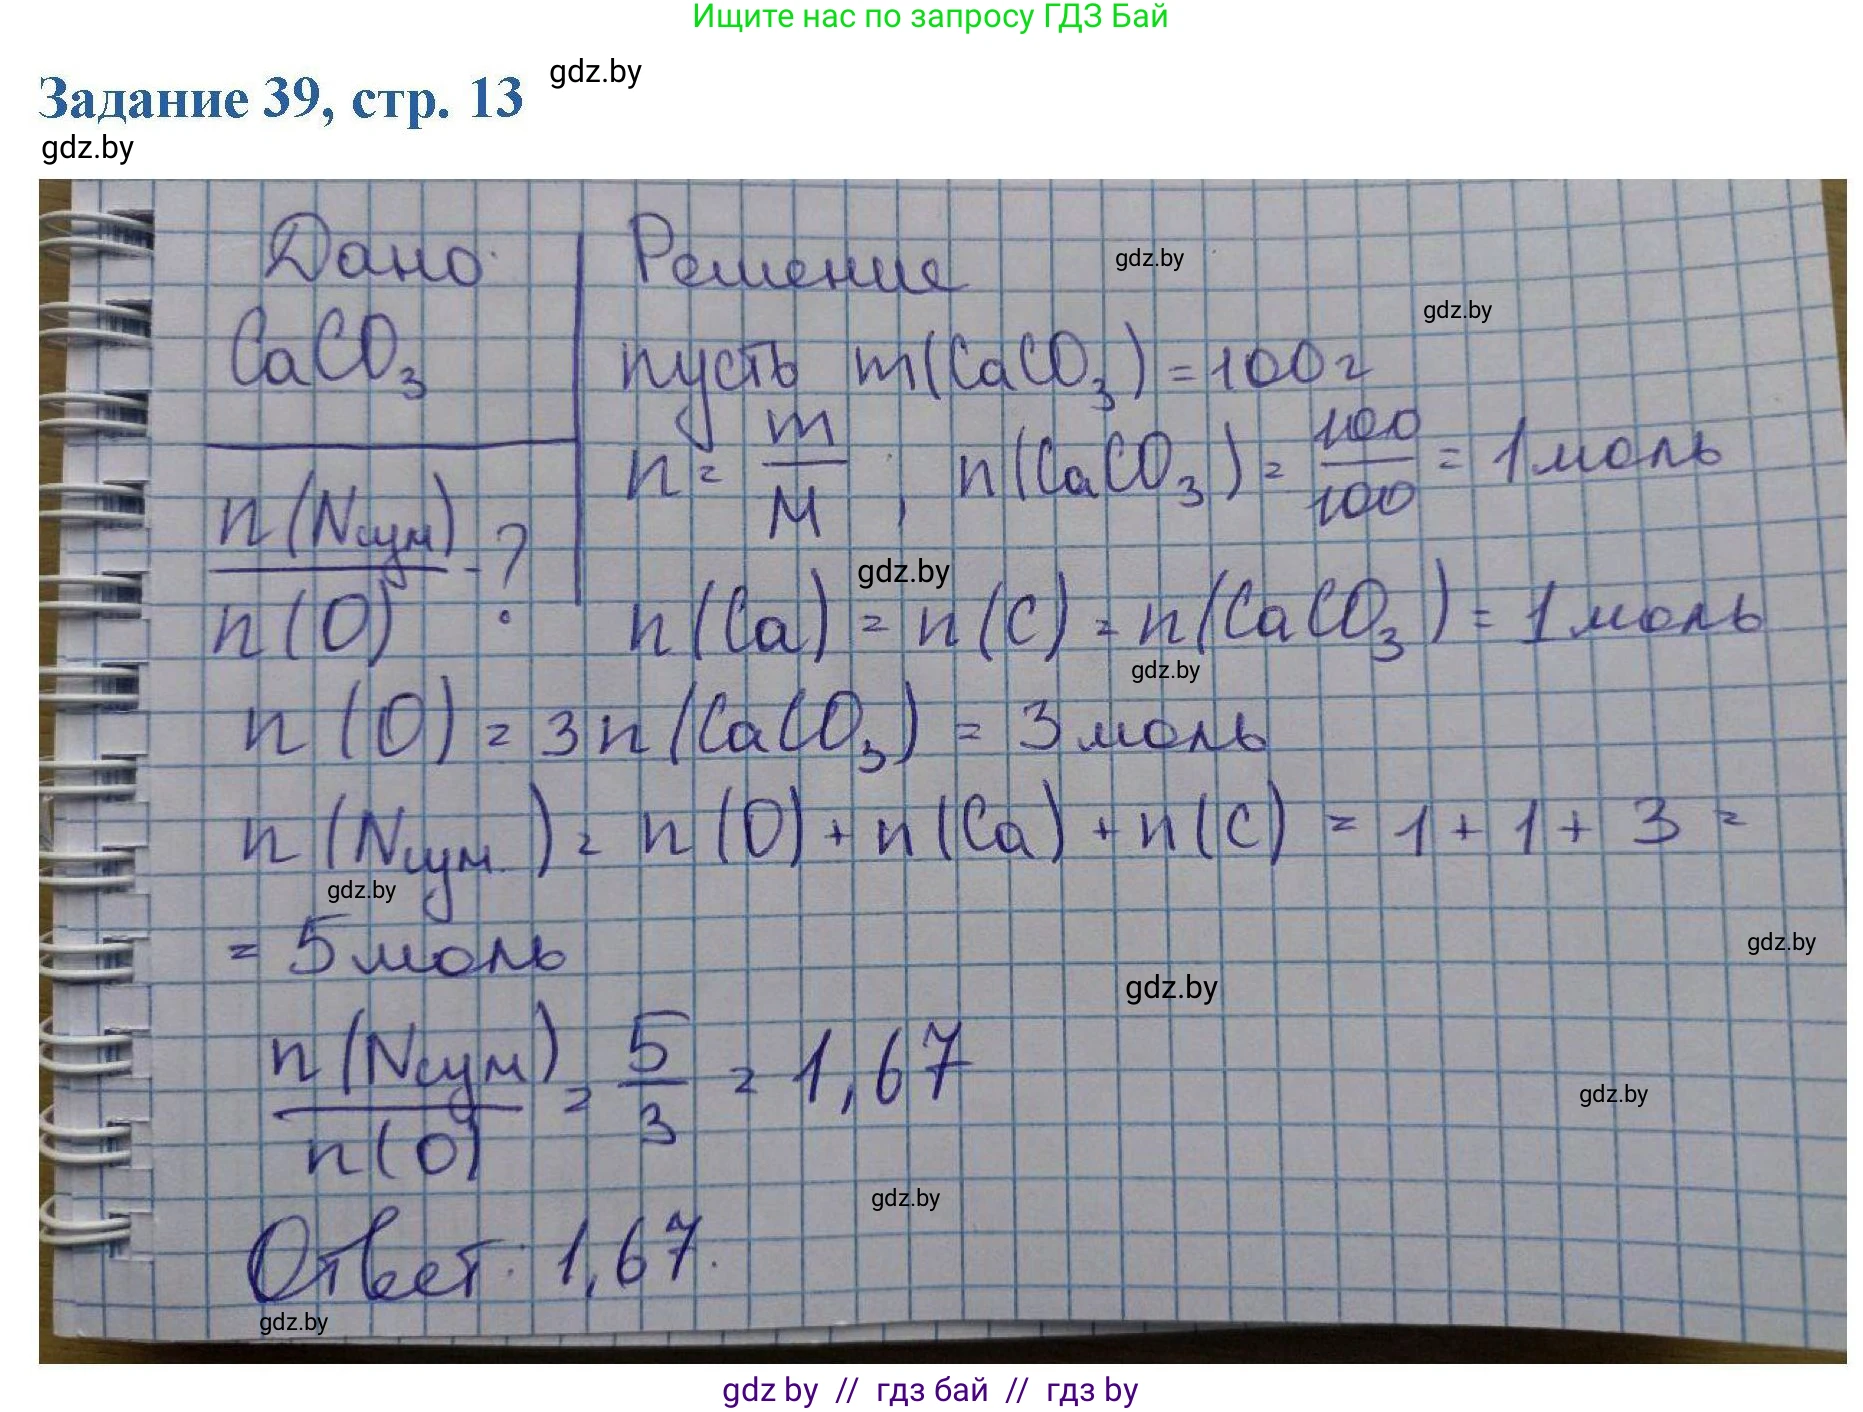 Ищите нас по запросу ГДЗ Бай
Задание 39, стр. 13 gdz.by
gdz.by
Дано: Решение gdz.by
gdz.by
CaCO₃ пусть m(CaCO₃) = 100г
n = m/M , n(CaCO₃) = 100/100 = 1 моль
n(Nсум)/n(O) - ?
gdz.by
n(Ca) = n(C) = n(CaCO₃) = 1 моль
gdz.by
n(O) = 3n(CaCO₃) = 3 моль
n(Nсум.) = n(O) + n(Ca) + n(C) = 1 + 1 + 3 =
gdz.by
= 5 моль
gdz.by
gdz.by
n(Nсум)/n(O) = 5/3 = 1,67
gdz.by
gdz.by
Ответ: 1,67.
gdz.by
gdz by // гдз бай // гдз by